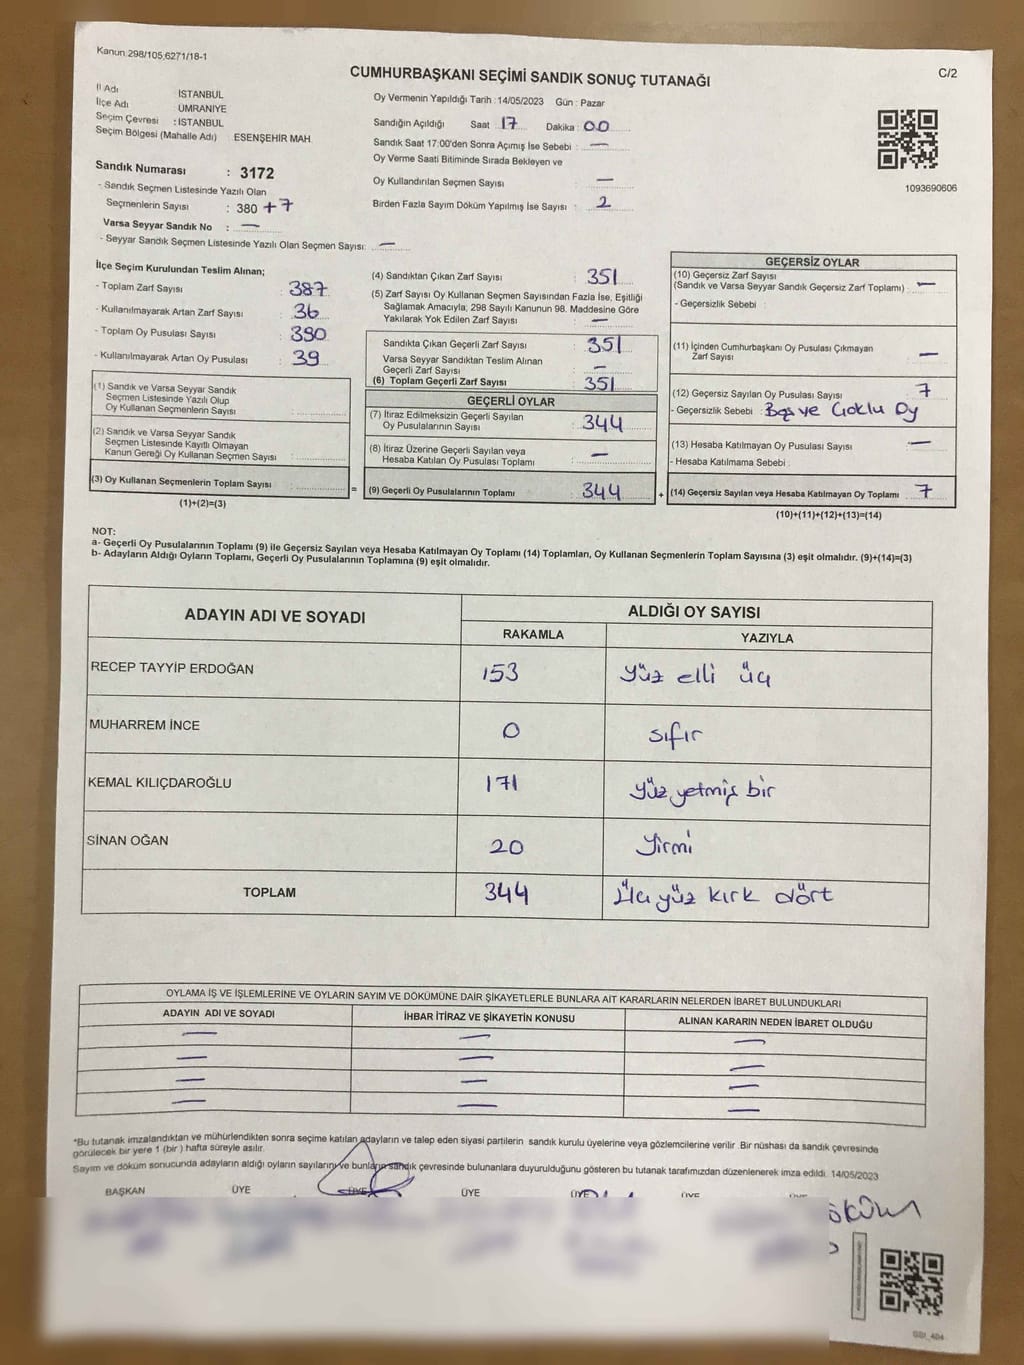 Kanun:298/105,6271/18-1
CUMHURBAŞKANI SEÇİMİ SANDIK SONUÇ TUTANAĞI
C/2
İl Adı : İSTANBUL
İlçe Adı : ÜMRANİYE
Seçim Çevresi : İSTANBUL
Seçim Bölgesi (Mahalle Adı) : ESENŞEHİR MAH.
Sandık Numarası : 3172
- Sandık Seçmen Listesinde Yazılı Olan
Seçmenlerin Sayısı : 380 +7
Varsa Seyyar Sandık No : —
- Seyyar Sandık Seçmen Listesinde Yazılı Olan Seçmen Sayısı: —
Oy Vermenin Yapıldığı Tarih :14/05/2023 Gün : Pazar
Sandığın Açıldığı Saat 17 Dakika : 00
Sandık Saat 17:00'den Sonra Açımış İse Sebebi : —
Oy Verme Saati Bitiminde Sırada Bekleyen ve
Oy Kullandırılan Seçmen Sayısı —
Birden Fazla Sayım Döküm Yapılmış İse Sayısı : 2
1093690606
İlçe Seçim Kurulundan Teslim Alınan;
- Toplam Zarf Sayısı : 387
- Kullanılmayarak Artan Zarf Sayısı : 36
- Toplam Oy Pusulası Sayısı : 390
- Kullanılmayarak Artan Oy Pusulası : 39
(1) Sandık ve Varsa Seyyar Sandık
Seçmen Listesinde Yazılı Olup
Oy Kullanan Seçmenlerin Sayısı :
(2) Sandık ve Varsa Seyyar Sandık
Seçmen Listesinde Kayıtlı Olmayan
Kanun Gereği Oy Kullanan Seçmen Sayısı :
(3) Oy Kullanan Seçmenlerin Toplam Sayısı :
(1)+(2)=(3)
(4) Sandıktan Çıkan Zarf Sayısı : 351
(5) Zarf Sayısı Oy Kullanan Seçmen Sayısından Fazla İse, Eşitliği
Sağlamak Amacıyla, 298 Sayılı Kanunun 98. Maddesine Göre
Yakılarak Yok Edilen Zarf Sayısı : —
Sandıkta Çıkan Geçerli Zarf Sayısı : 351
Varsa Seyyar Sandıktan Teslim Alınan
Geçerli Zarf Sayısı : —
(6) Toplam Geçerli Zarf Sayısı : 351
GEÇERLİ OYLAR
(7) İtiraz Edilmeksizin Geçerli Sayılan
Oy Pusulalarının Sayısı : 344
(8) İtiraz Üzerine Geçerli Sayılan veya
Hesaba Katılan Oy Pusulası Toplamı : —
= (9) Geçerli Oy Pusulalarının Toplamı : 344 +
GEÇERSİZ OYLAR
(10) Geçersiz Zarf Sayısı
(Sandık ve Varsa Seyyar Sandık Geçersiz Zarf Toplamı) : —
- Geçersizlik Sebebi :
(11) İçinden Cumhurbaşkanı Oy Pusulası Çıkmayan
Zarf Sayısı —
(12) Geçersiz Sayılan Oy Pusulası Sayısı : 7
- Geçersizlik Sebebi : Boş ve Çoklu Oy
(13) Hesaba Katılmayan Oy Pusulası Sayısı : —
- Hesaba Katılmama Sebebi :
(14) Geçersiz Sayılan veya Hesaba Katılmayan Oy Toplamı 7
(10)+(11)+(12)+(13)=(14)
NOT:
a- Geçerli Oy Pusulalarının Toplamı (9) ile Geçersiz Sayılan veya Hesaba Katılmayan Oy Toplamı (14) Toplamları, Oy Kullanan Seçmenlerin Toplam Sayısına (3) eşit olmalıdır. (9)+(14)=(3)
b- Adayların Aldığı Oyların Toplamı, Geçerli Oy Pusulalarının Toplamına (9) eşit olmalıdır.
ADAYIN ADI VE SOYADI ALDIĞI OY SAYISI
RAKAMLA YAZIYLA
RECEP TAYYİP ERDOĞAN 153 yüz elli üç
MUHARREM İNCE 0 sıfır
KEMAL KILIÇDAROĞLU 171 yüz yetmiş bir
SİNAN OĞAN 20 yirmi
TOPLAM 344 Üç yüz kırk dört
OYLAMA İŞ VE İŞLEMLERİNE VE OYLARIN SAYIM VE DÖKÜMÜNE DAİR ŞİKAYETLERLE BUNLARA AİT KARARLARIN NELERDEN İBARET BULUNDUKLARI
ADAYIN ADI VE SOYADI İHBAR İTİRAZ VE ŞİKAYETİN KONUSU ALINAN KARARIN NEDEN İBARET OLDUĞU
— — —
— — —
— — —
— — —
*Bu tutanak imzalandıktan ve mühürlendikten sonra seçime katılan adayların ve talep eden siyasi partilerin sandık kurulu üyelerine veya gözlemcilerine verilir. Bir nüshası da sandık çevresinde
görülecek bir yere 1 (bir) hafta süreyle asılır.
Sayım ve döküm sonucunda adayların aldığı oyların sayılarını ve bunların sandık çevresinde bulunanlara duyurulduğunu gösteren bu tutanak tarafımızdan düzenlenerek imza edildi. 14/05/2023
BAŞKAN ÜYE ÜYE ÜYE ÜYE ÜYE ÜYE